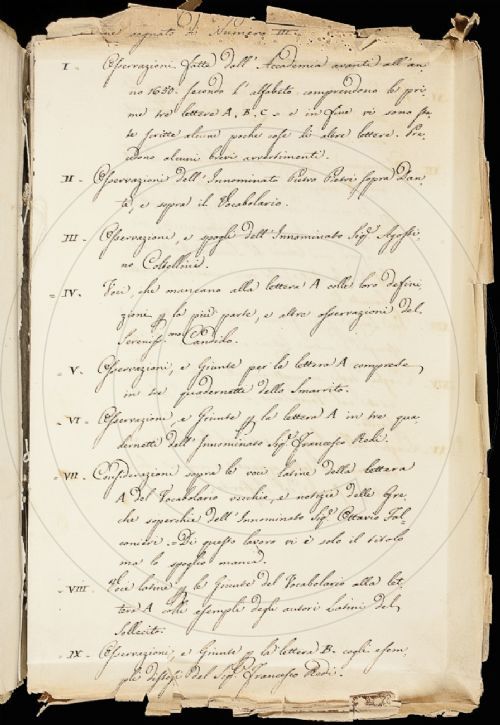 segnato A. Numero III.
I Osservazioni fatte dall' Accademia avanti all' an-
no 1650. secondo l' alfabeto comprendono le pri-
me tre lettere A, B, C = e in fine vi sono sta-
te scritte alcune poche cose di altre lettere. Pre-
cedono alcuni brevi avvertimenti.
II - Osservazioni dell' Innominato Pietro Pietri sopra Dan-
te, e sopra il Vocabolario.
III - Osservazioni, e spogli dell' Innominato Sigr. Agosti-
no Coltellini.
= IV. Voci, che mancano alla lettera A colle loro defini-
zione p la più parte, e altre osservazioni del
Sereniss.mo Candido.
- V. Osservazioni, e Giunte per la lettera A comprese
in tre quadernette dello Smarrito.
- VI Osservazioni e Giunte p la lettera A in tre qua-
dernette dell' Innominato Sigr. Francesco Redi.
- VII. Considerazioni sopra le voci latine della lettera
A del Vocabolario vecchio, e notizie delle Gre-
che soperchie dell' Innominato Sigr. Ottavio Fal-
conieri. = Di questo lavoro vi è solo il titolo
ma lo spoglio manca.
- VIII Voci latine p le Giunte del Vocabolario alla let-
tera A colli esempli degli autori Latini del
Sollecito.
- IX - Osservazioni, e Giunte p la lettera B. cogli esem-
pli distesi del Sigr. Francesco Redi.